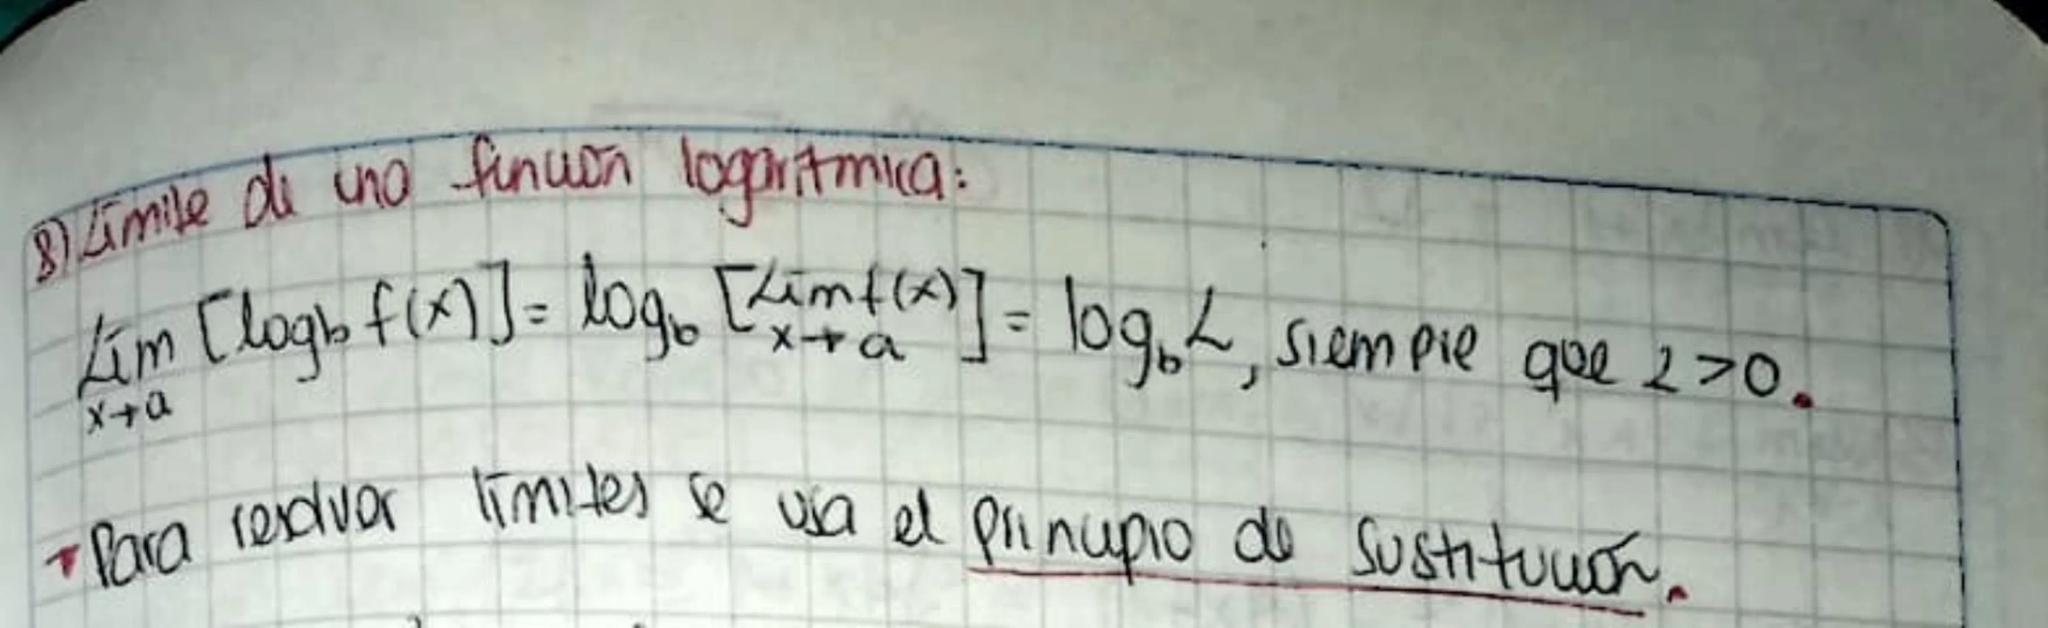 8) Límite de una función logaritmica:
Lim [logb f(x)] = logb [Lim f(x)] = logb L, siempre que L > 0.
x→a x→a
Para resolver límites se usa el principio de sustitución.